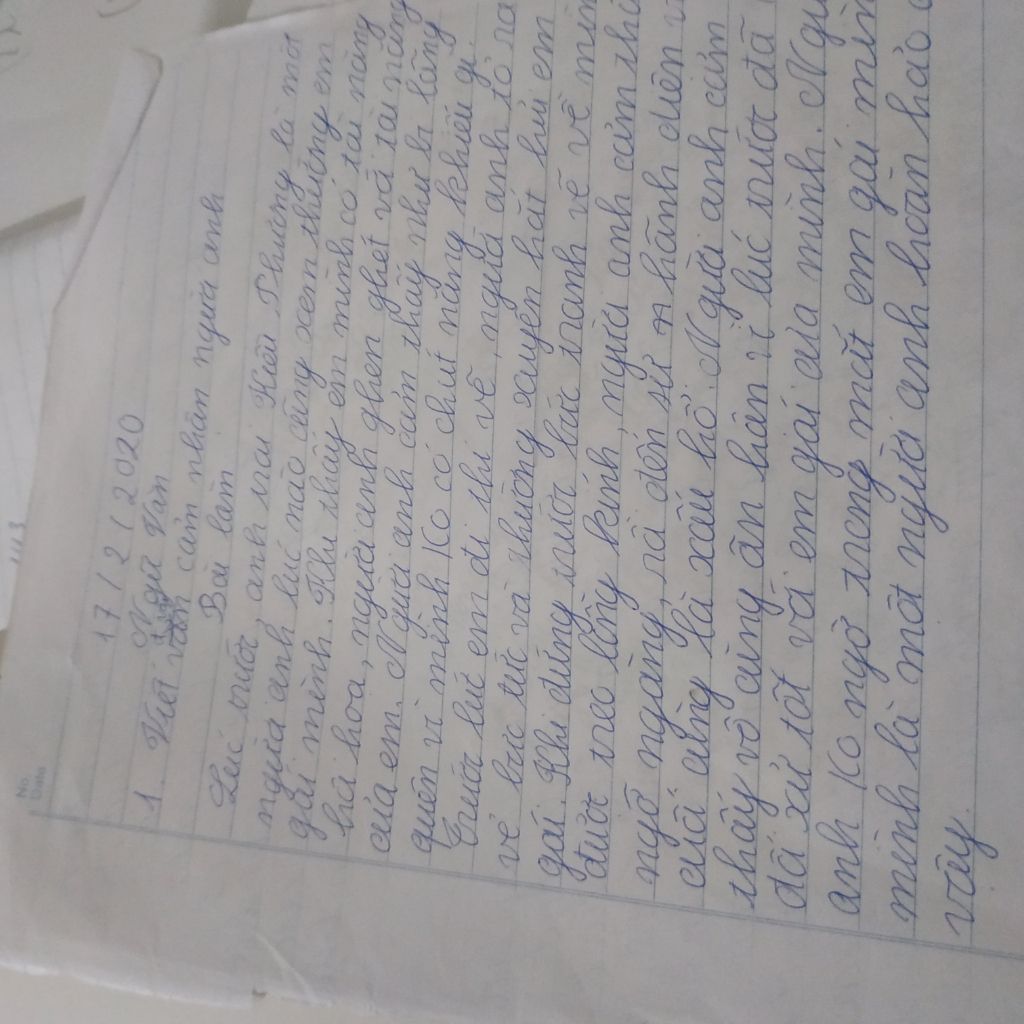 No.
Date
17/2/2020
Ngữ Văn
1. Viết văn cảm nhận người anh
Bài làm
Lúc trước anh trai Kiều Phương là một
người anh lúc nào cũng xem thường em
gái mình. Khi thấy em mình có tài năng
hội hoa, người anh ghen ghét với tài năng
của em. Người anh cảm thấy như bị lãng
quên vì mình Ko có chút năng khiếu gì.
Trước lúc em đi thi vẽ, người anh tỏ ra
vẻ bực tức và thường xuyên hắt hủi em
gái. Khi đứng trước bức tranh vẽ về mình
được treo lồng kính, người anh cảm thấy
ngỡ ngàng, rồi đến sự hãnh diện và
cuối cùng là xấu hổ. Người anh cảm
thấy vô cùng ân hận vì lúc trước đã
đối xử tốt với em gái của mình. Người
anh Ko ngờ trong mắt em gái mình
mình là một người anh hoàn hảo
vậy